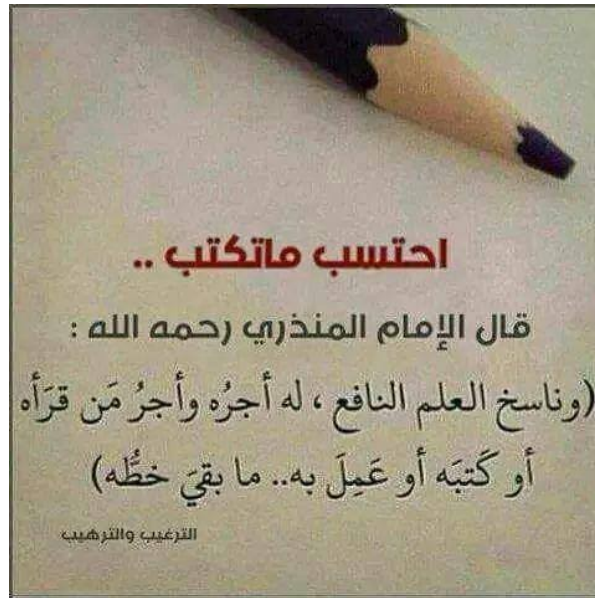 احتسب ماتكتب ..
قال الإمام المنذري رحمه الله :
(وناسخ العلم النافع ، له أجرُه وأجرُ مَن قرَأه
أو كَتبَه أو عَمِلَ به.. ما بقيَ خطُّه)
الترغيب والترهيب